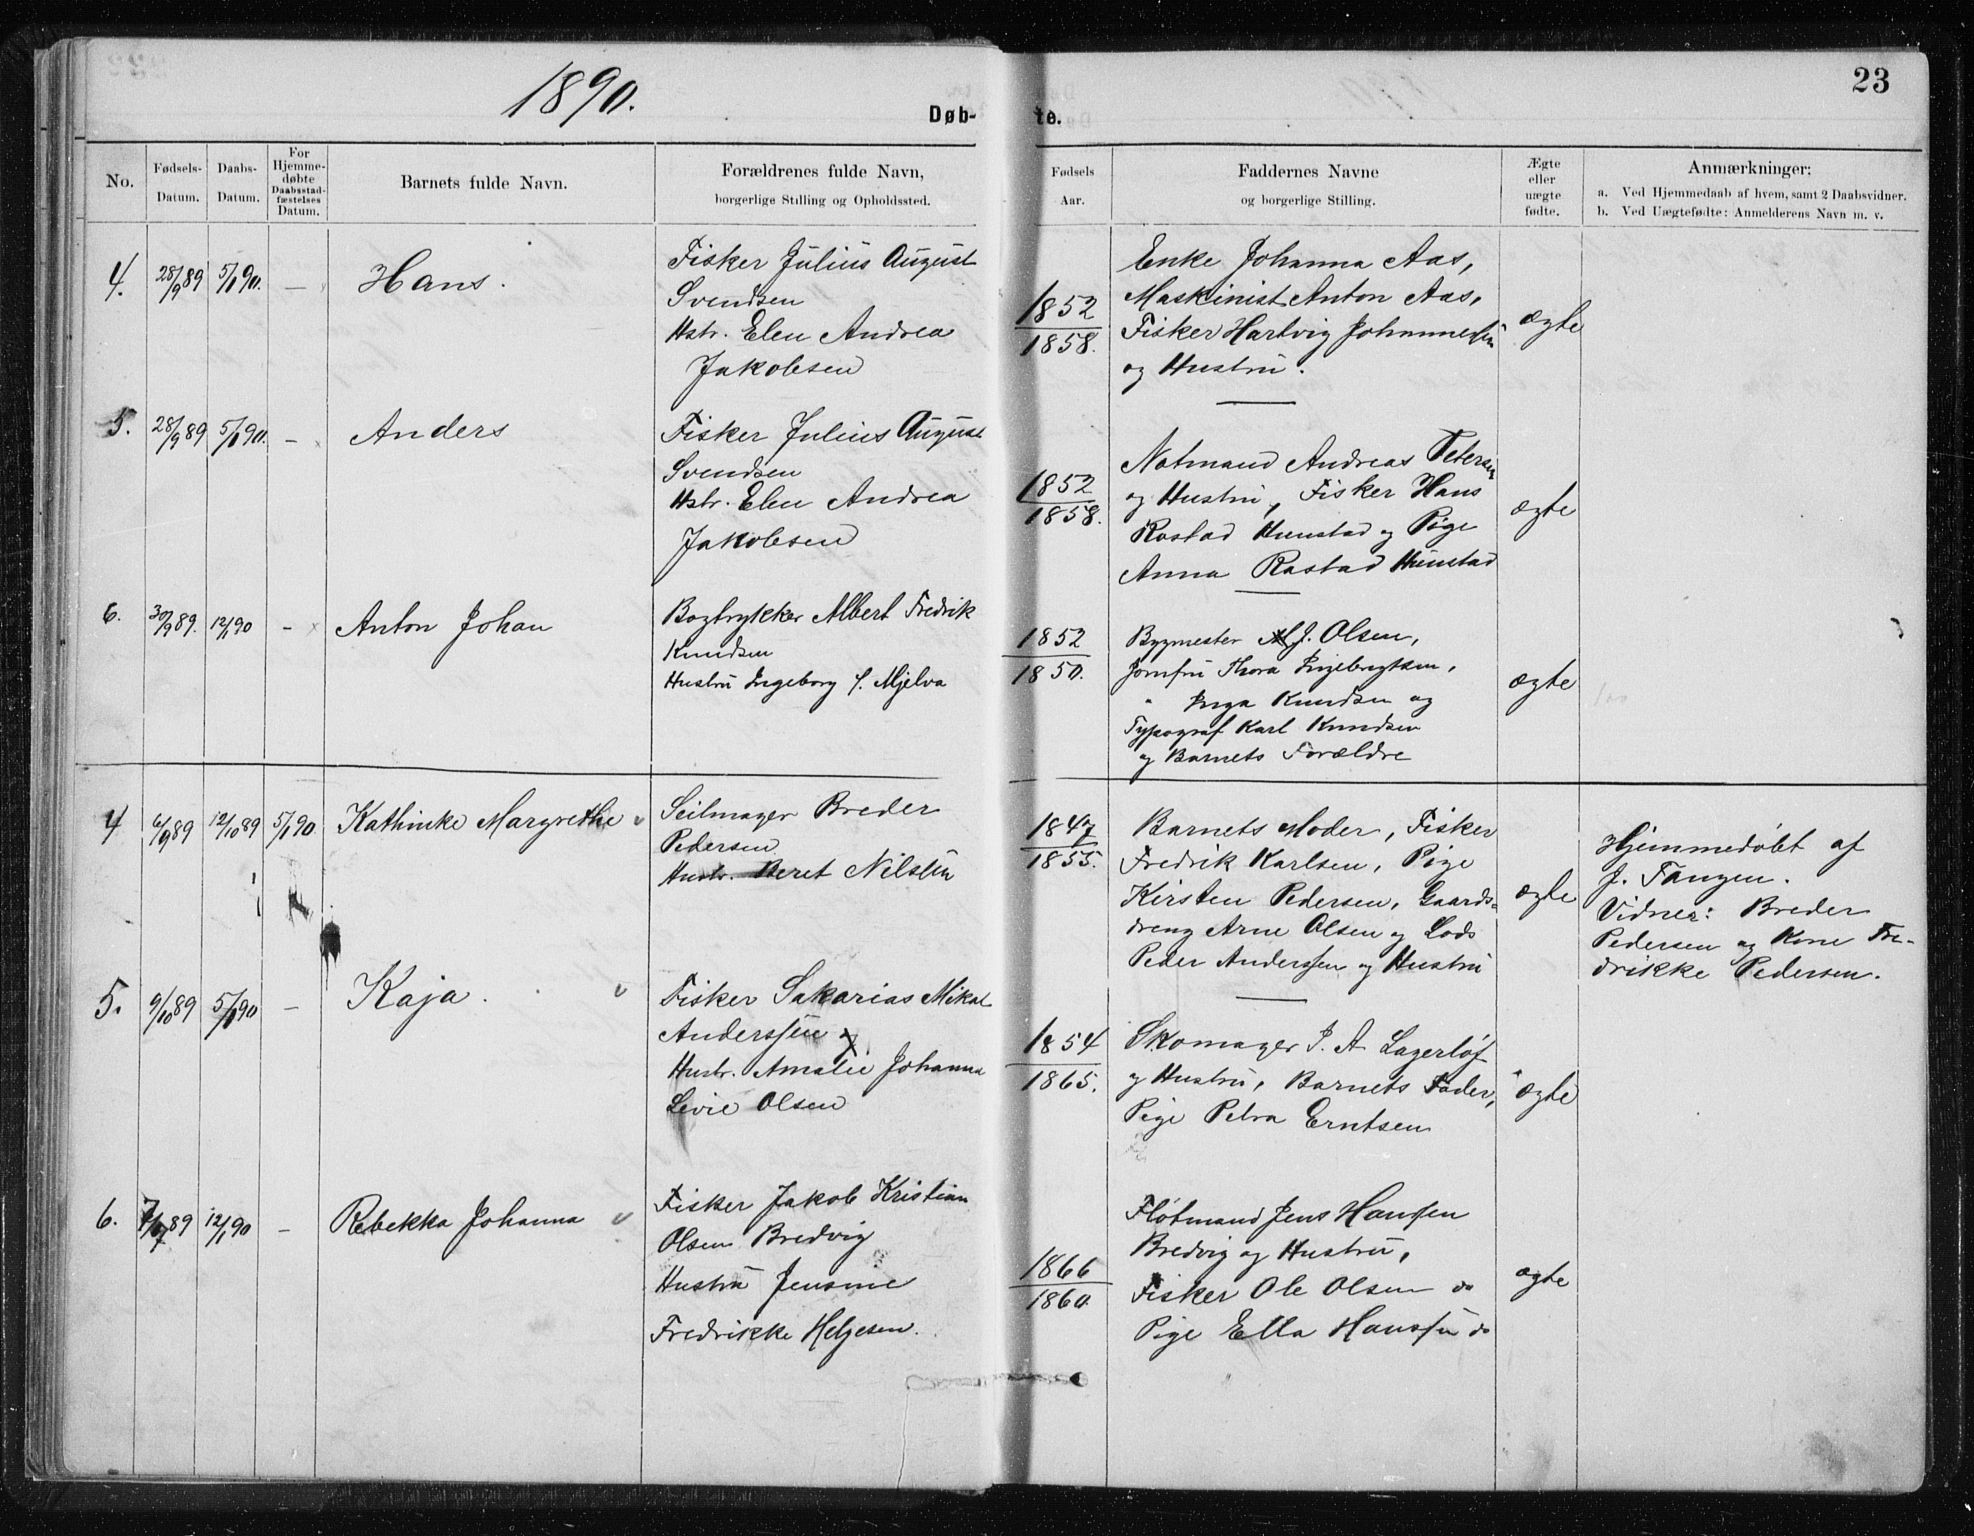 1890.
23
Døb-
te.
No.
Fødsels-
Datum.
Daabs-
Datum.
For
Hjemme-
døbte
Daabsstad-
fæstelses
Datum.
Barnets fulde Navn.
Forældrenes fulde Navn,
borgerlige Stilling og Opholdssted.
Fødsels
Aar.
Faddernes Navne
og borgerlige Stilling.
Ægte
eller
uægte
fødte.
Anmærkninger:
a. Ved Hjemmedaab af hvem, samt 2 Daabsvidner.
b. Ved Uægtefødte: Anmelderens Navn m. v.
4. 28/9 89 5/1 90. — Hans.
Fisker Julius August
Svendsen
Hstr. Elen Andrea
Jakobsen
1852
1858.
Enke Johanna Aas,
Maskinist Anton Aas,
Fisker Hartvig Johannessen
og Hustru.
ægte
5. 28/9 89 5/1 90. — Anders
Fisker Julius August
Svendsen
Hstr. Elen Andrea
Jakobsen
1852
1858.
Notmand Andreas Petersen
og Hustru, Fisker Hans
Rostad Hunstad og Pige
Anna Rostad Hunstad
ægte
6. 30/9 89. 12/1 90 — Anton Johan
Bogtrykker Albert Fredrik
Knudsen
Hustru Ingeborg S. Mjelva
1852
1850.
Bygmester J. Olsen,
Jomfru Thora Ingebrigtsen,
" Inga Knudsen og
Typograf Karl Knudsen
og Barnets Forældre
ægte
4 6/9 89 12/10 89 5/1 90 Kathinke Margrethe
Seilmager Breder
Pedersen
Hustr. Beret Nilsen
1847
1855.
Barnets Moder, Fisker
Fredrik Karlsen, Pige
Kirsten Pedersen, Gaards-
dreng Arne Olsen og Lods
Peder Anderssen og Hustru
ægte
Hjemmedøbt af
J. Fangen.
Vidner: Breder
Pedersen og Kone Fre-
drikke Pedersen.
5. 9/10 89 5/1 90 — Kaja.
Fisker Sakarias Mikal
Anderssen og
Hustr. Amalie Johanna
Levie Olsen
1854
1865.
Skomager J. A. Lagerløf
og Hustru, Barnets Fader,
Pige Petra Erntsen
ægte
6. 89 12/1 90 — Rebekka Johanna
Fisker Jakob Kristian
Olsen Bredvig
Hustru Jensine
Fredrikke Helgesen.
1866
1860.
Fløtmand Jens Hansen
Bredvig og Hustru,
Fisker Ole Olsen do
Pige Ella Hanssen do
ægte